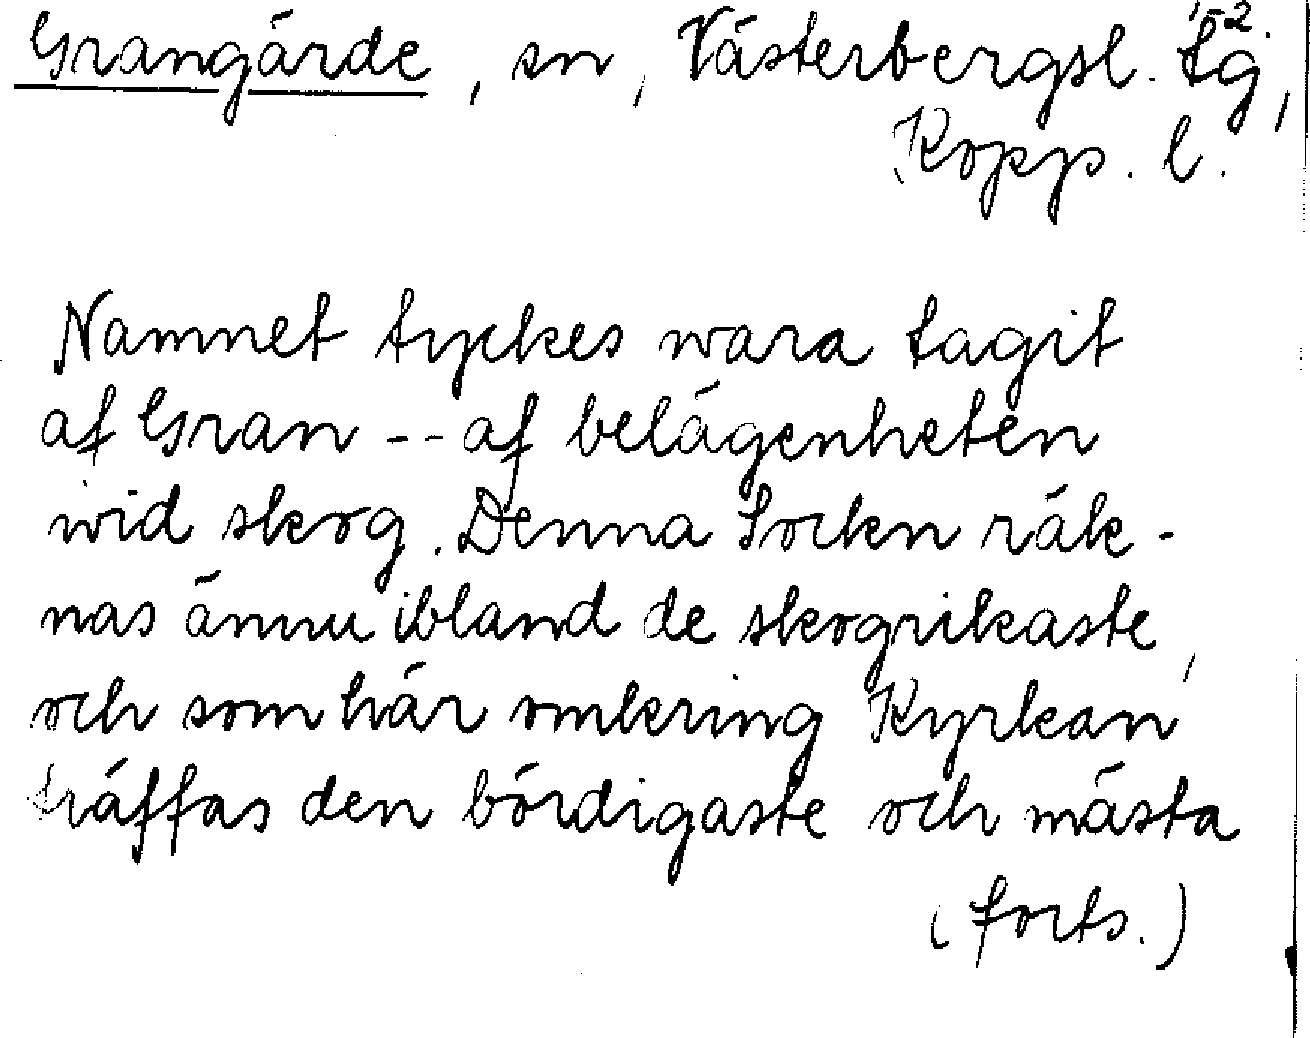 Grangärde, sn, Västerbergsl. tg,
Kopp. l.
Namnet tyckes wara tagit
af Gran -- af belägenheten
wid skog. Denna Sockn räk-
nas ännu ibland de skogrikaste,
och som här omkring Kyrkan
träffas den bördigaste och mästa
(forts.)